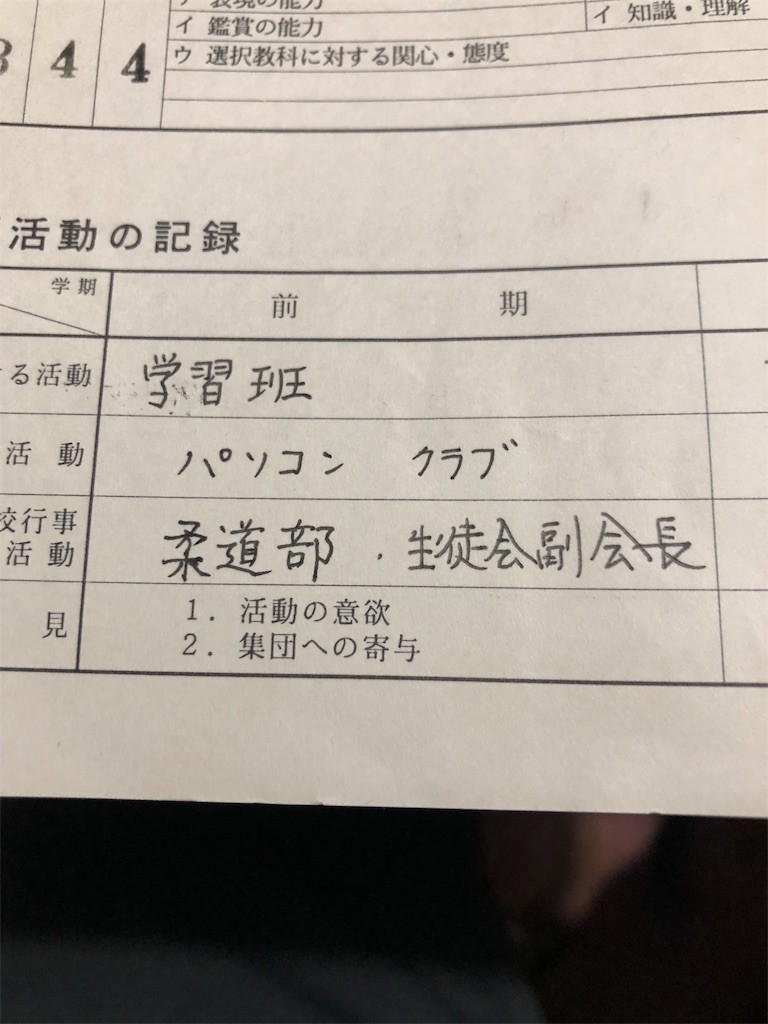 ア 表現の能力
イ 鑑賞の能力
イ 知識・理解
ウ 選択教科に対する関心・態度
3 4 4
活動の記録
学期
前 期
る活動
学習班
活 動
パソコン クラブ
校行事
活 動
柔道部 . 生徒会副会長
見
1. 活動の意欲
2. 集団への寄与